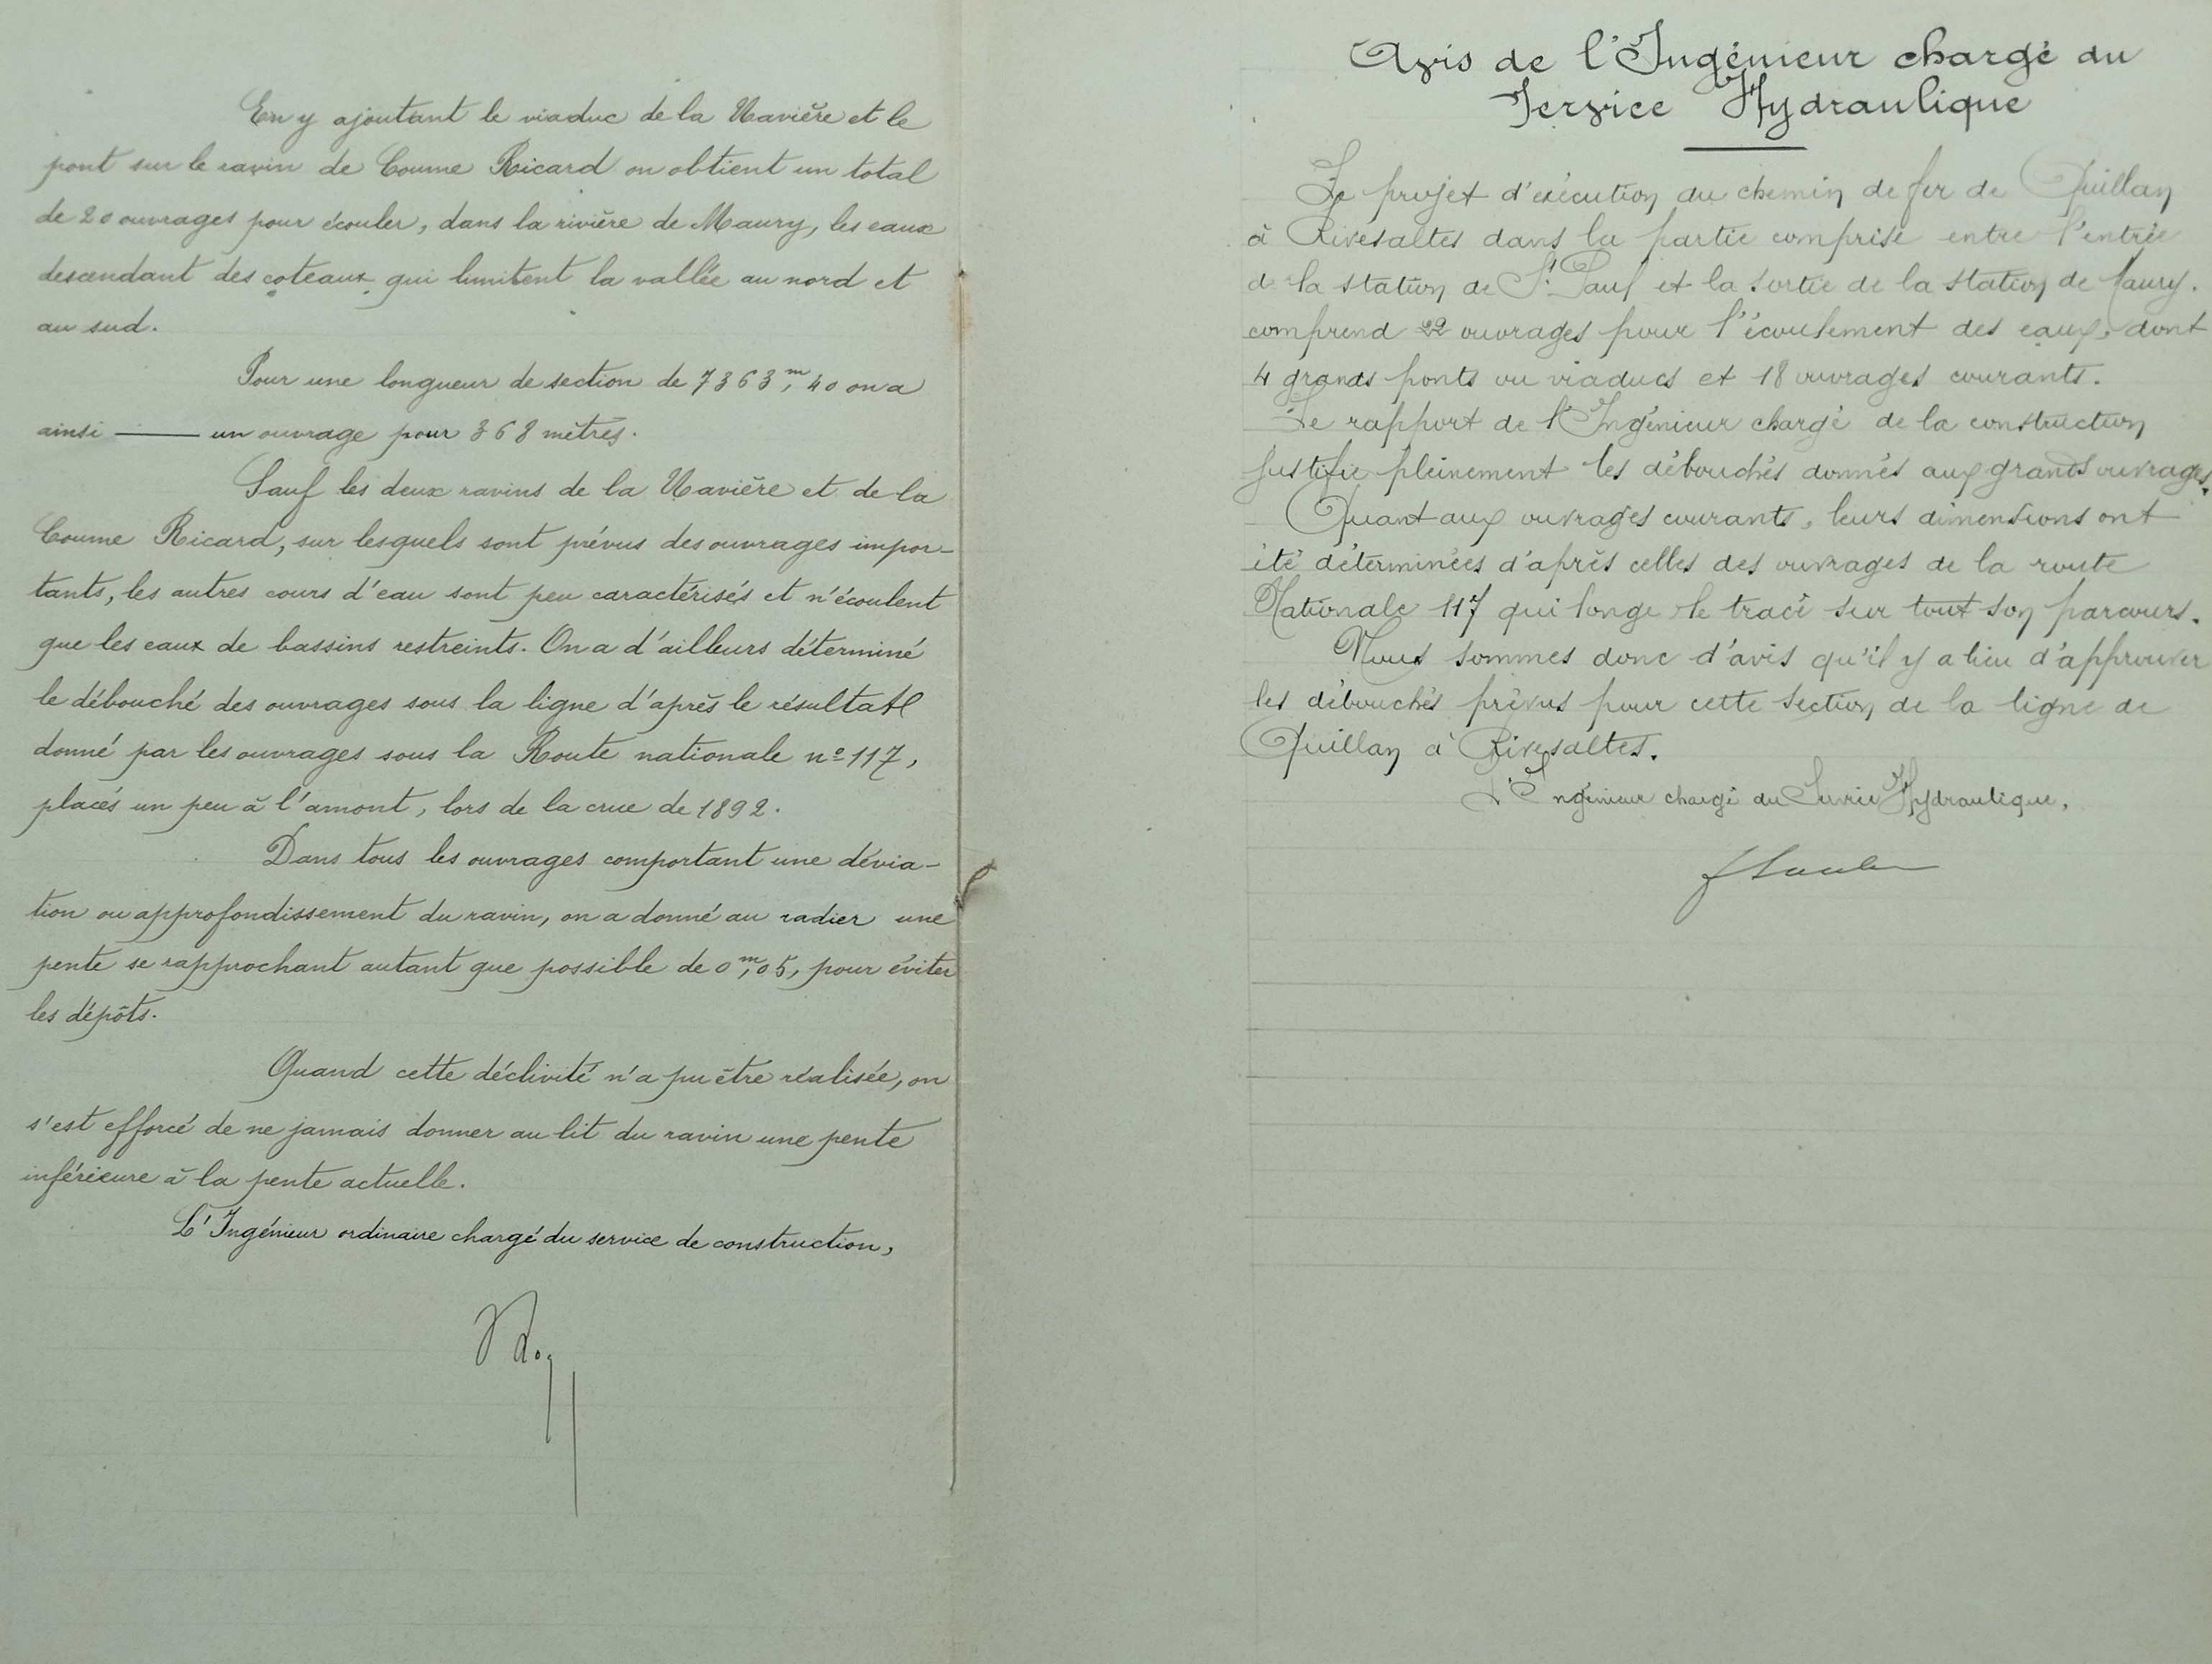 En y ajoutant le viaduc de la Navière et le
pont sur le ravin de Coume Ricard on obtient un total
de 20 ouvrages pour écouler, dans la rivière de Maury, les eaux
descendant des coteaux qui limitent la vallée au nord et
au sud.
Pour une longueur de section de 7363m,40 on a
ainsi — un ouvrage pour 368 mètres.
Sauf les deux ravins de la Navière et de la
Coume Ricard, sur lesquels sont prévus des ouvrages impor-
tants, les autres cours d'eau sont peu caractérisés et n'écoulent
que les eaux de bassins restreints. On a d'ailleurs déterminé
le débouché des ouvrages sous la ligne d'après le résultat
donné par les ouvrages sous la Route nationale nº 117,
placés un peu à l'amont, lors de la crue de 1892.
Dans tous les ouvrages comportant une dévia-
tion ou approfondissement du ravin, on a donné au radier une
pente se rapprochant autant que possible de 0m,05, pour éviter
les dépôts.
Quand cette déclivité n'a pu être réalisée, on
s'est efforcé de ne jamais donner au lit du ravin une pente
inférieure à la pente actuelle.
L'Ingénieur ordinaire chargé du service de construction,
Avis de l'Ingénieur chargé du
Service Hydraulique
Le projet d'exécution du chemin de fer de Quillan
à Rivesaltes dans la partie comprise entre l'entrée
de la station de St Paul et la sortie de la station de Maury.
comprend 22 ouvrages pour l'écoulement des eaux, dont
4 grands ponts ou viaducs et 18 ouvrages courants.
Le rapport de l'Ingénieur chargé de la construction
justifie pleinement les débouchés donnés aux grands ouvrages.
Quant aux ouvrages courants, leurs dimensions ont
été déterminées d'après celles des ouvrages de la route
Nationale 117 qui longe le tracé sur tout son parcours.
Nous sommes donc d'avis qu'il y a lieu d'approuver
les débouchés prévus pour cette section de la ligne de
Quillan à Rivesaltes.
L'Ingénieur chargé du Service Hydraulique,